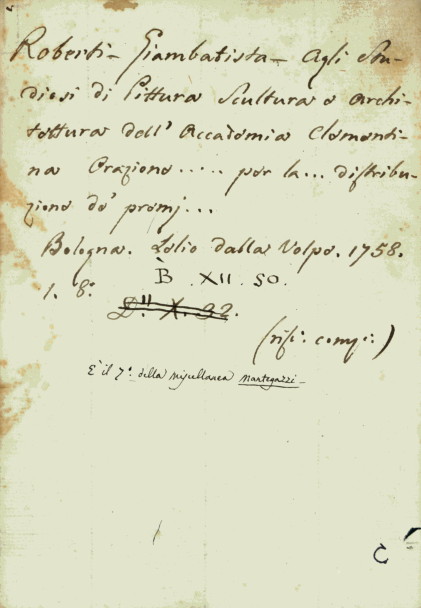 Roberti- Giambatista- Agli Stu-
diosi di Pittura Scultura e Archi-
tettura dell' Accademia Clementi-
na Orazione ..... per la... distribu-
zione de' premj...
Bologna. Lelio dalla Volpe. 1758.
1. 8°
B .XII .50.
D." X. 32
(rif: comp: )
È il 7° della miscellanea Mantegazzi-
C